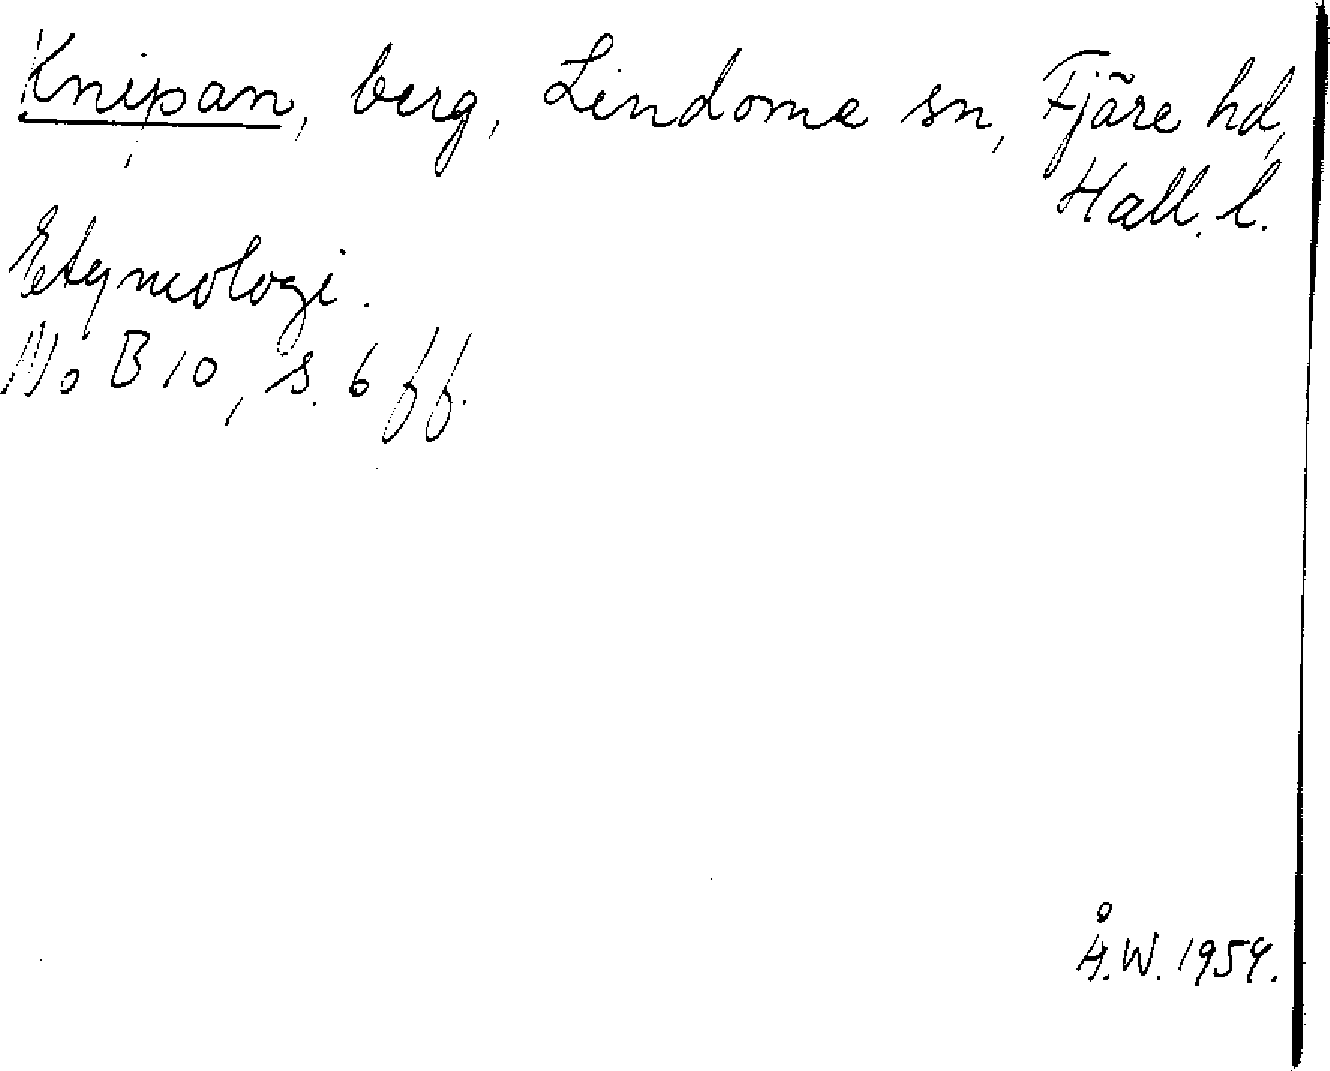 Knipan, berg, Lindome sn, Fjäre hd,
Hall. l.
Etymologi.
NoB 10, s. 6 ff.
Å.W. 1959.